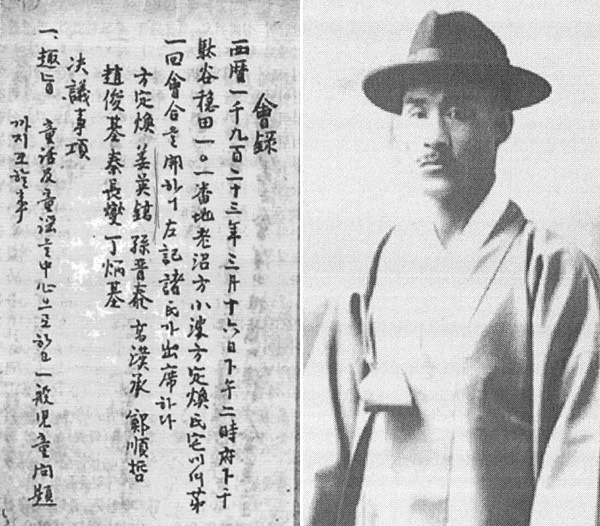 會錄
西曆一千九百二十三年三月十六日下午二時府下千
駄谷穩田一〇一番地老沼方小波方定煥氏宅에서第
一回會合을開하니 左記諸氏가出席하다
方定煥 姜英鎬 孫晋泰 高漢承 鄭順哲
趙俊基 秦長燮 丁炳基
決議事項
一、趣旨 童話及童謠를中心으로하고 一般兒童問題
까지로할事